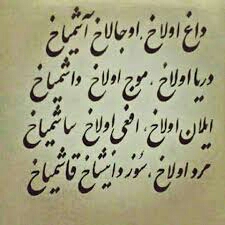 داغ اولاخ، اوجالاخ آشمیاخ
دریا اولاخ، موج اولاخ داشمیاخ
ایلان اولاخ، افعی اولاخ ساشمیاخ
مرد اولاخ، سؤز دانیشاخ قاشمیاخ